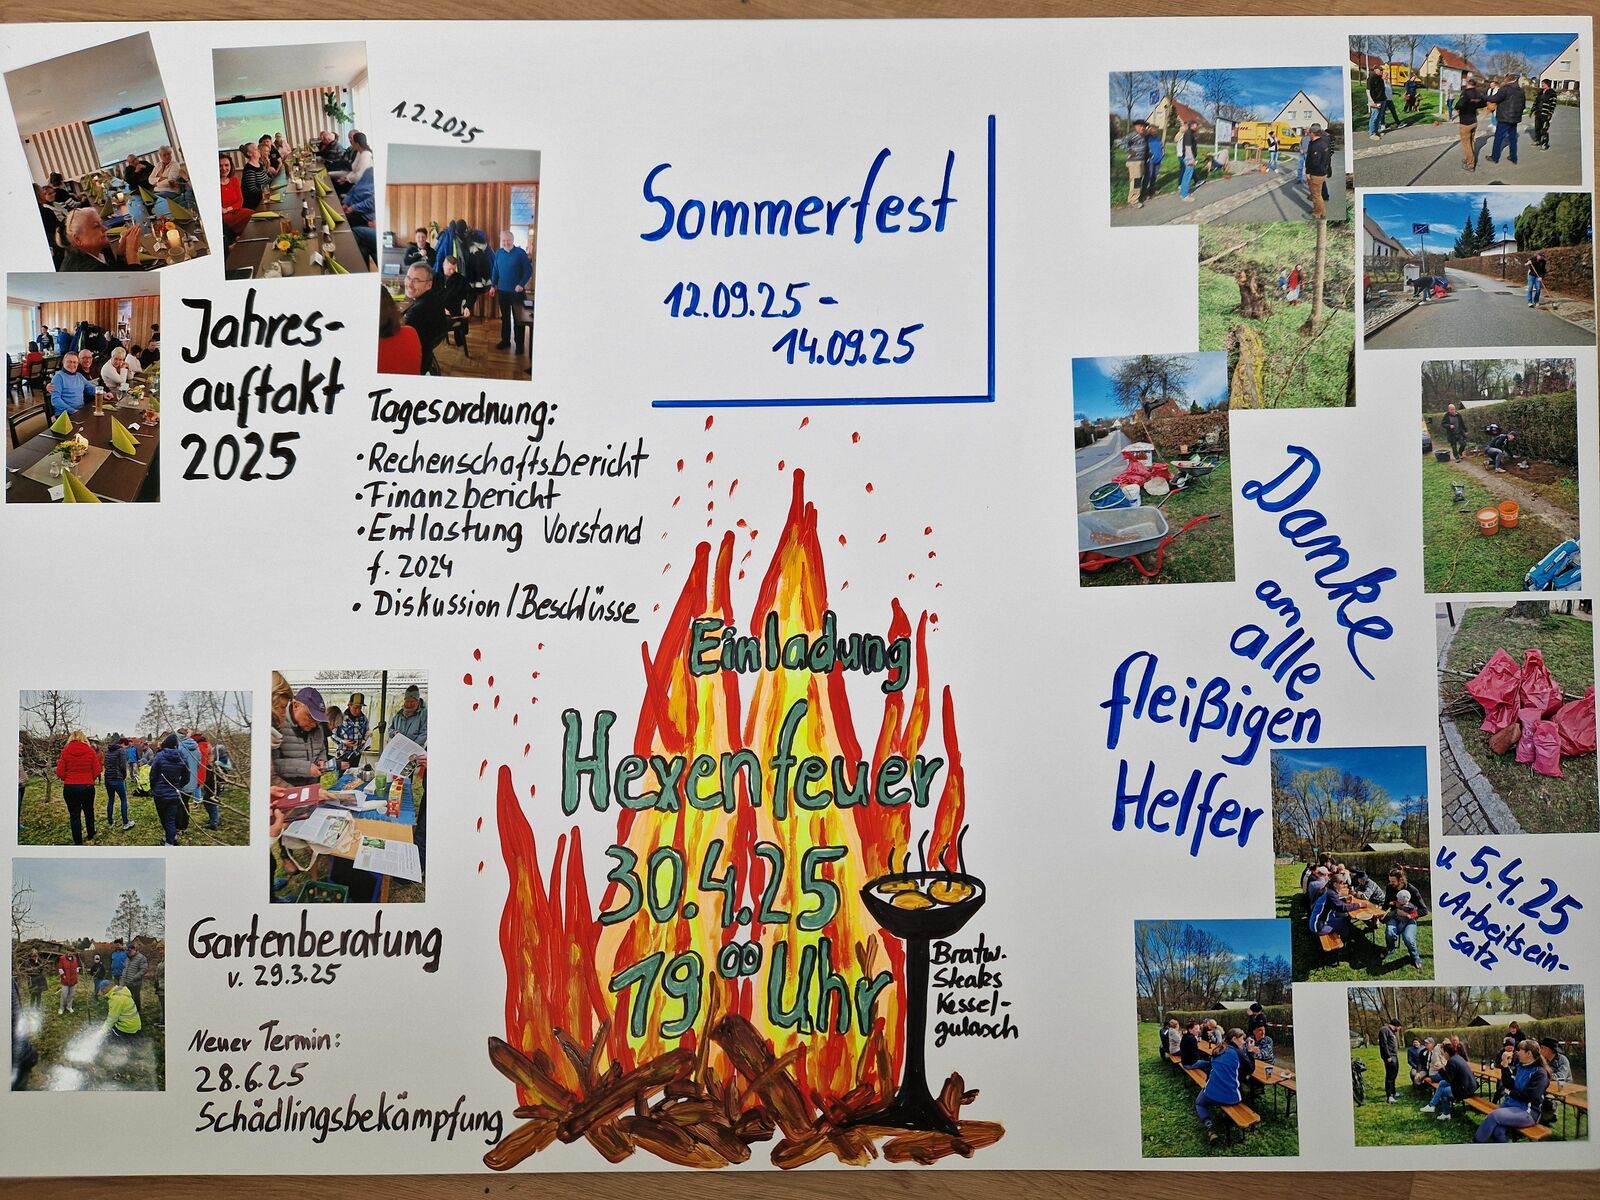 1.2.2025
Jahres-
auftakt
2025
Tagesordnung:
• Rechenschaftsbericht
• Finanzbericht
• Entlastung Vorstand
f. 2024
• Diskussion/Beschlüsse
Sommerfest
12.09.25 -
14.09.25
Einladung
Hexenfeuer
30.4.25
19⁰⁰ Uhr
Bratw.
Steaks
Kessel-
gulasch
Gartenberatung
v. 29.3.25
Neuer Termin:
28.6.25
Schädlingsbekämpfung
Danke
an
alle
fleißigen
Helfer
v. 5.4.25
Arbeitsein-
satz